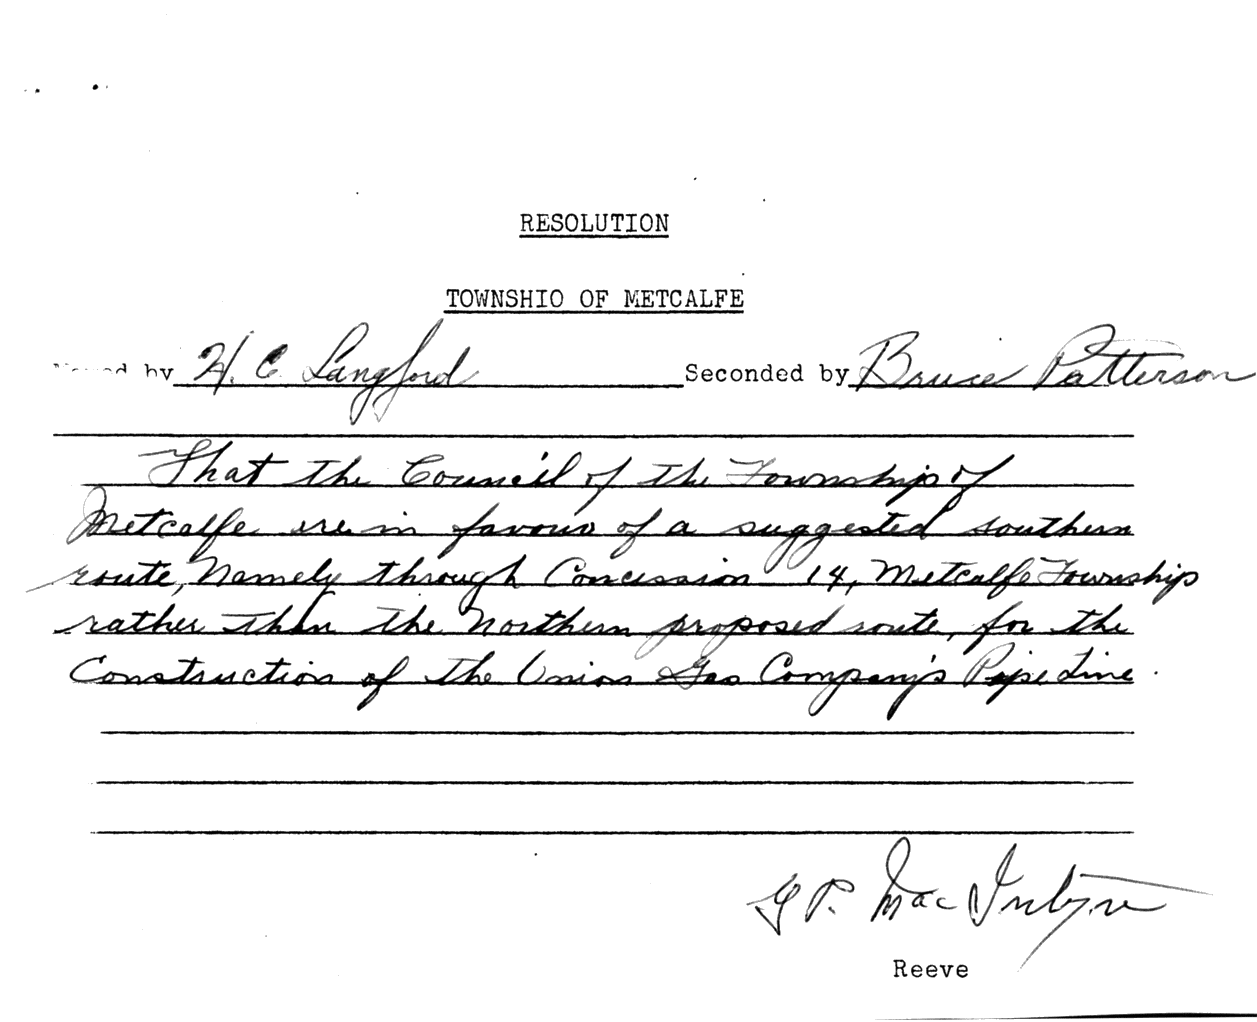 RESOLUTION
TOWNSHIO OF METCALFE
Moved by H. C. Langford Seconded by Bruce Patterson
That the Council of the Township of
Metcalfe are in favour of a suggested southern
route, Namely through Concession 14, Metcalfe Township
rather than the Northern proposed route, for the
Construction of the Union Gas Company's Pipe Line.
G P. MacIntyre
Reeve